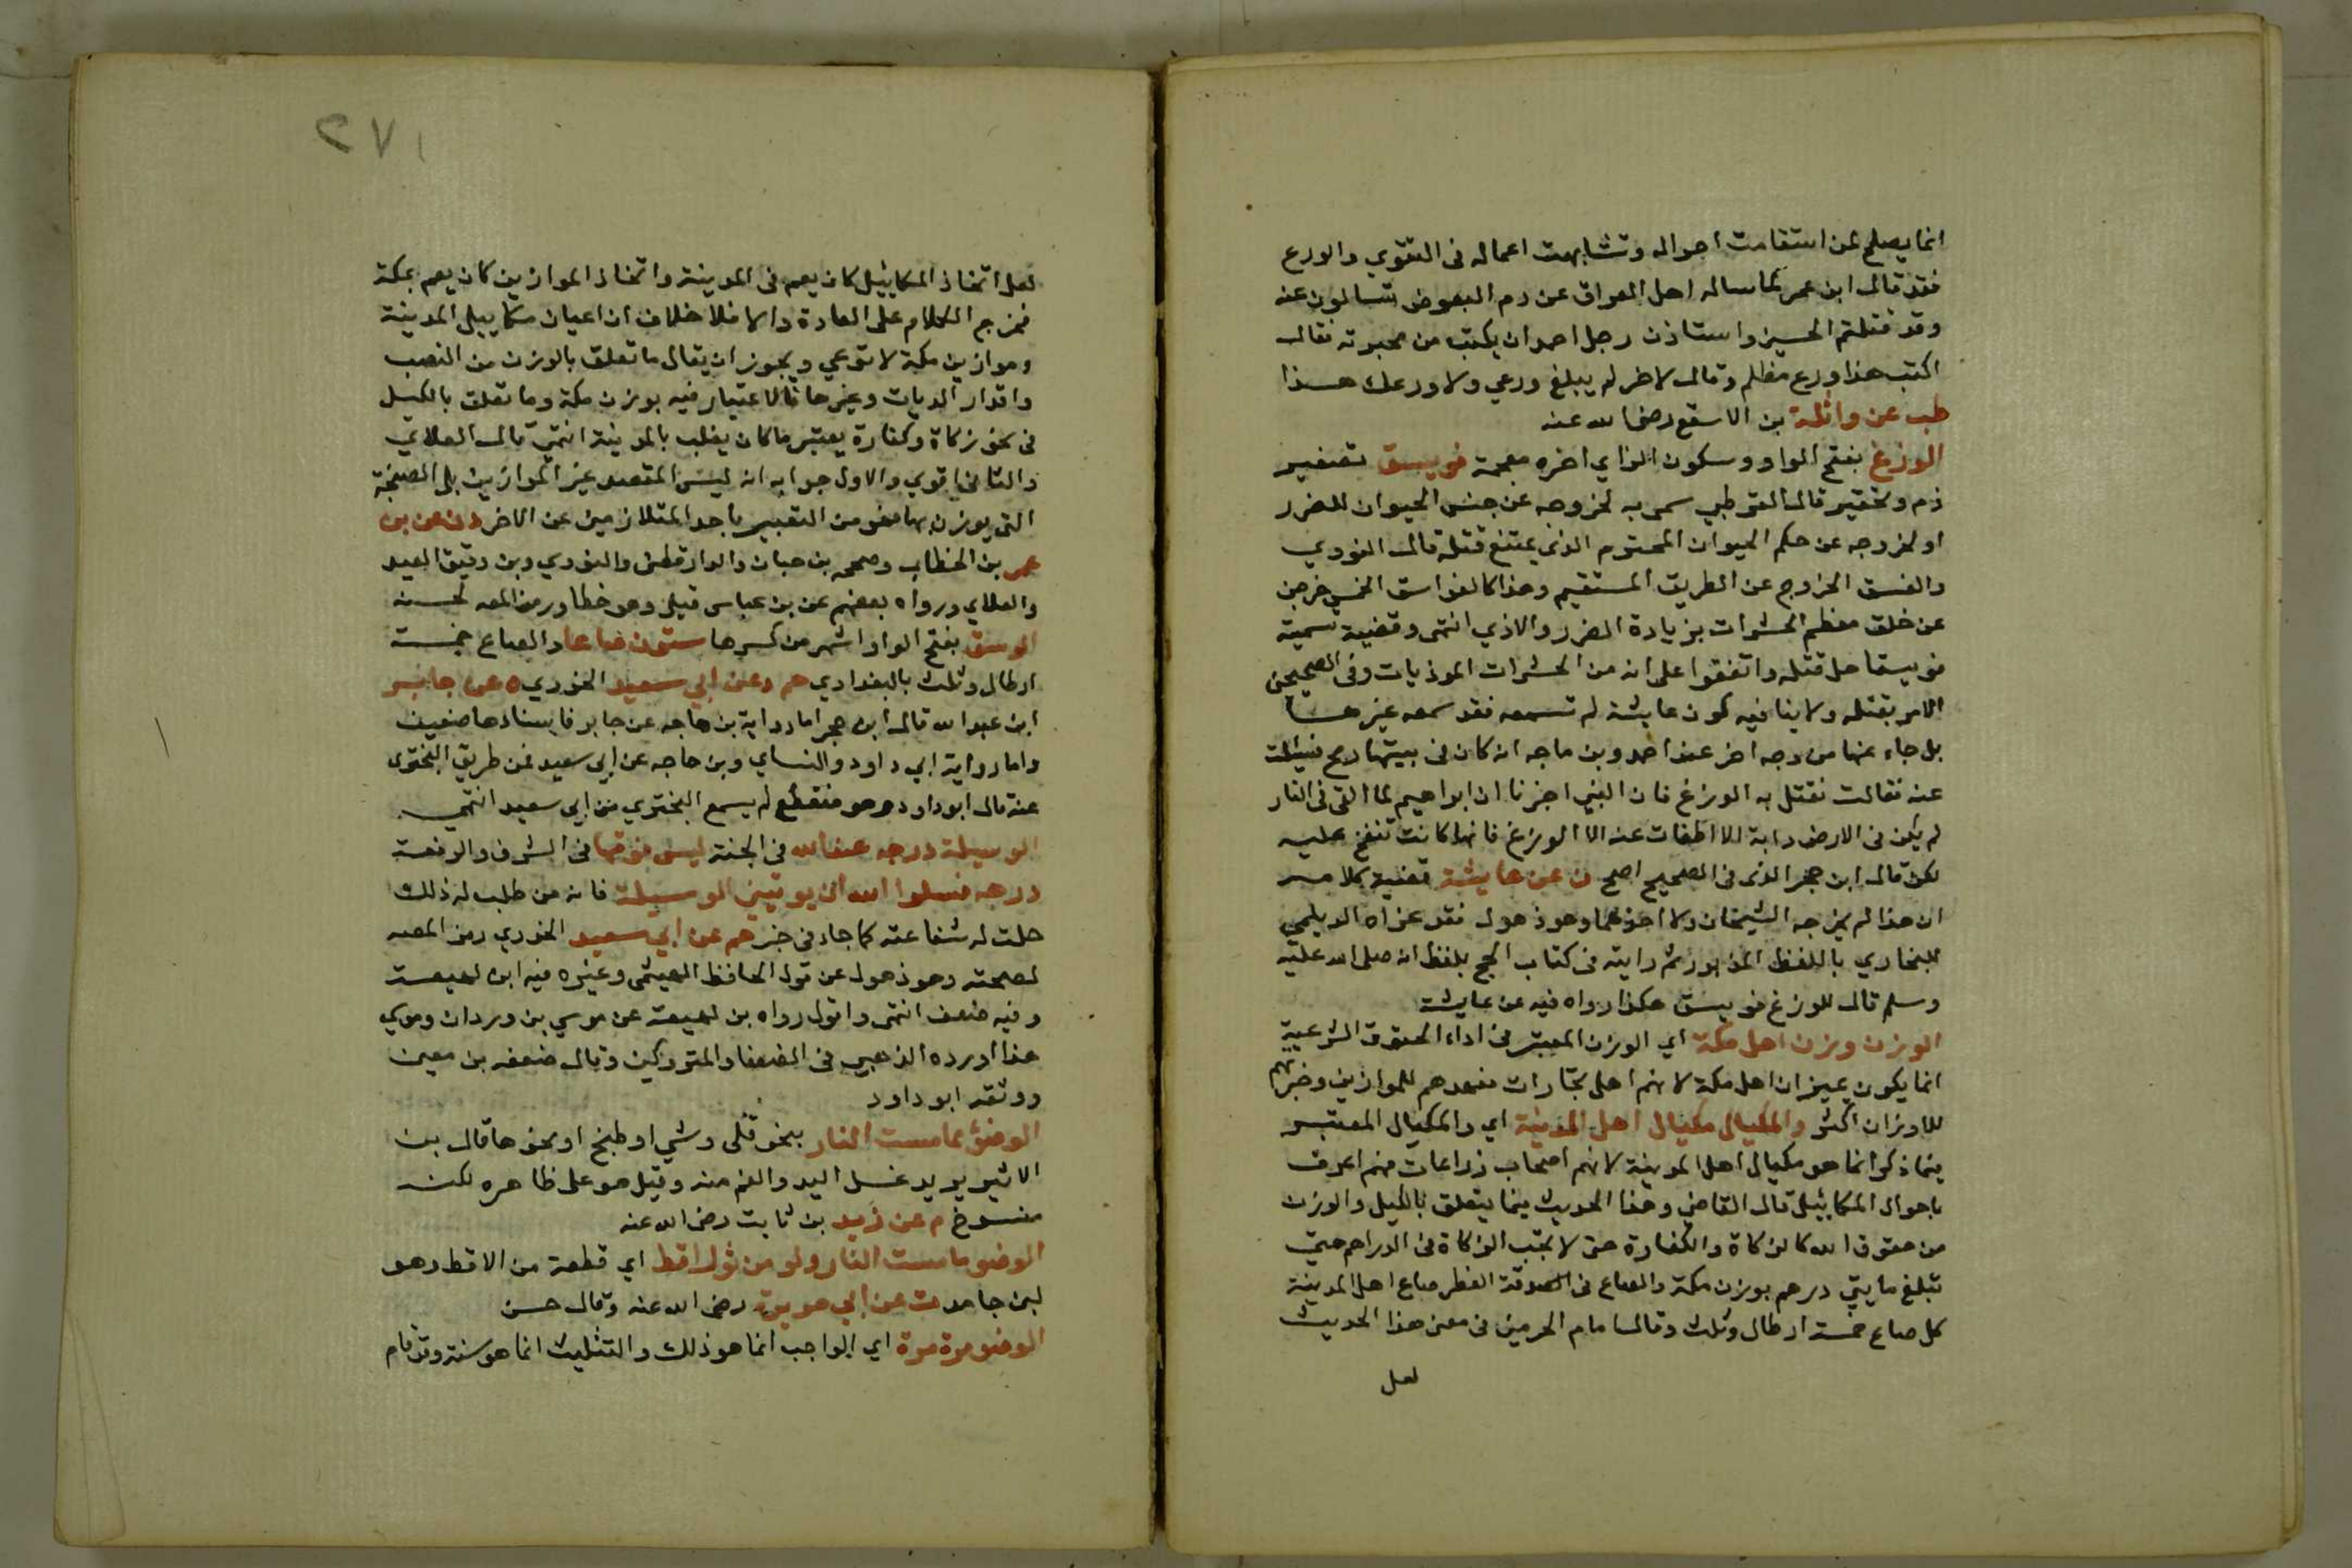 انما يصلح لمن استقامت احواله وتشابهت اعماله فى التقوي والورع
فقد قال ابن عمر لما ساله اهل العراق عن دم البعوض تسالون عنه
وقد قتلتم الحسين واستاذن رجل احمد ان يكتب من محبرته فقال
اكتب هذا ورع مظلم وقال لاخر لم يبلغ ورعي ولا ورعك هذا
طب عن واثلة بن الاسقع رضى الله عنه
الوزغ بفتح الواو وسكون الزاي اخره معجمة فويسق تصغير
ذم وتحقير قال القرطبي سمى به لخروجه عن جنس الحيوان للضرر
او لخروجه عن حكم الحيوان المحترم الذي يمتنع قتله قال النووي
والفسق الخروج عن الطريق المستقيم وهذا كالفواسق الخمس خرجن
عن خلق معظم الحشرات بزيادة الضرر والاذي انتهى وقضية تسميته
فويسقا حل قتله واتفقوا على انه من الحشرات الموذيات وفى الصحيحين
الامر بقتله ولا ينافيه كون عايشة لم تسمعه فقد سمعه غيرها
بل جاء عنها من وجه اخر عند احمد وبن ماجه انه كان فى بيتها رمح فسئلت
عنه فقالت نقتل به الوزغ فان النبي اخبرنا ان ابراهيم لما القى فى النار
لم يكن فى الارض دابة الا اطفات عنه الا الوزغ فانها كانت تنفخ عليه
لكن قال ابن حجر الذى فى الصحيح اصح ن عن عايشة قضية كلامه
ان هذا لم يخرجه الشيخان ولا احدهما وهو ذهول فقد عزاه الديلمي
للبخاري باللفظ المزبور ثم رايته فى كتاب الحج بلفظ انه صلى الله عليه
وسلم قال للوزغ فويسق هكذا رواه فيه عن عايشة
الوزن وزن اهل مكة اي الوزن المعتبر فى اداء الحقوق الشرعية
انما يكون بميزان اهل مكة لانهم اهل تجارات فعهدهم للموازين وخبرتهم
للاوزان اكثر والمكيال مكيال اهل المدينة اي والمكيال المعتبر
فيما ذكر انما هو مكيال اهل المدينة لانهم اصحاب زراعات فهم اعرف
باحوال المكاييل قال القاضي وهذا الحديث فيما يتعلق بالكيل والوزن
من حقوق الله كالزكاة والكفارة حتى لا تجب الزكاة فى الدراهم حتي
تبلغ مايتي درهم بوزن مكة والصاع فى الصدقة الفطر صاع اهل المدينة
كل صاع خمسة ارطال وثلث وقال امام الحرمين فى معنى هذا الحديث
لعل
٢٧١
لعل اتخاذ المكاييل كان يعم فى المدينة واتخاذ الموازين كان يعم بمكة
فخرج الكلام على العادة والا فلا خلاف ان اعيان مكاييل المدينة
وموازين مكة لا تراعي ويجوز ان يقال ما تعلق بالوزن من النصب
واقدار الديات وغيرها فالاعتبار فيه بوزن مكة وما تعلق بالكيل
فى نحو زكاة وكفارة يعتبر ما كان يغلب بالمدينة انتهى قال العلائي
والثاني اقوي والاول جوابه انه ليس المقصد عين الموازين بل الصنجة
التى يوزن بها فهو من التعبير باحد المتلازمين عن الاخر د ن عن بن
عمر بن الخطاب وصححه بن حبان والدارقطنى والنووي وبن دقيق العيد
والعلاي ورواه بعضهم عن بن عباس قيل وهو خطا ورمز المص لحسنه
الوسق بفتح الواو اشهر من كسرها ستون صاعا والصاع خمسة
ارطال وثلث بالبغدادي حم د عن ابي سعيد الخدري ه عن جابر
ابن عبد الله قال ابن حجر اما رواية بن ماجه عن جابر فاسنادها ضعيف
واما رواية ابي داود والنساي وبن ماجه عن ابي سعيد فمن طريق البختري
عنه قال ابو داود وهو منقطع لم يسمع البختري من ابي سعيد انتهى
الوسيلة درجه عند الله فى الجنة ليس فوقها فى الشرف والرفعة
درجه فسلوا الله ان يوتيني الوسيلة فانه من طلب له ذلك
حلت له شفاعته كما جاء فى خبر حم عن ابي سعيد الخدري رمز المص
لصحته وهو ذهول عن قول الحافظ الهيثمى وغيره فيه ابن لهيعة
وفيه ضعف انتهى واقول رواه بن لهيعة عن موسي بن وردان وموسي
هذا اورده الذهبي فى الضعفا والمتروكين وقال ضعفه بن معين
ووثقه ابو داود
الوضؤ مما مست النار بنحو قلى وشي او طبخ او نحوها قال بن
الاثير يريد غسل اليد والفم منه وقيل هو على ظاهره لكنه
منسوخ م عن زيد بن ثابت رضى الله عنه
الوضو مما مست النار ولو من ثور اقط اي قطعة من الاقط وهو
لبن جامد ت عن ابي هريرة رضى الله عنه وقال حسن
الوضو مرة مرة اي الواجب انما هو ذلك والتثليث انما هو سنة وقد قام